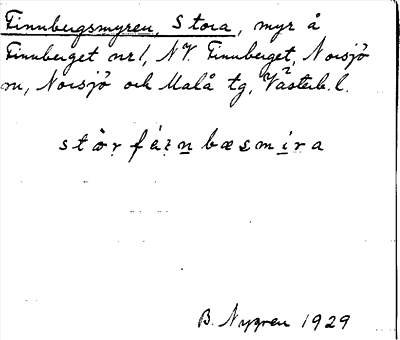 Finnbergsmyren, Stora, myr å
Finnberget nr 1, NV. Finnberget, Norsjö
sn, Norsjö och Malå tg, Västerb. l.
B. Nygren 1929